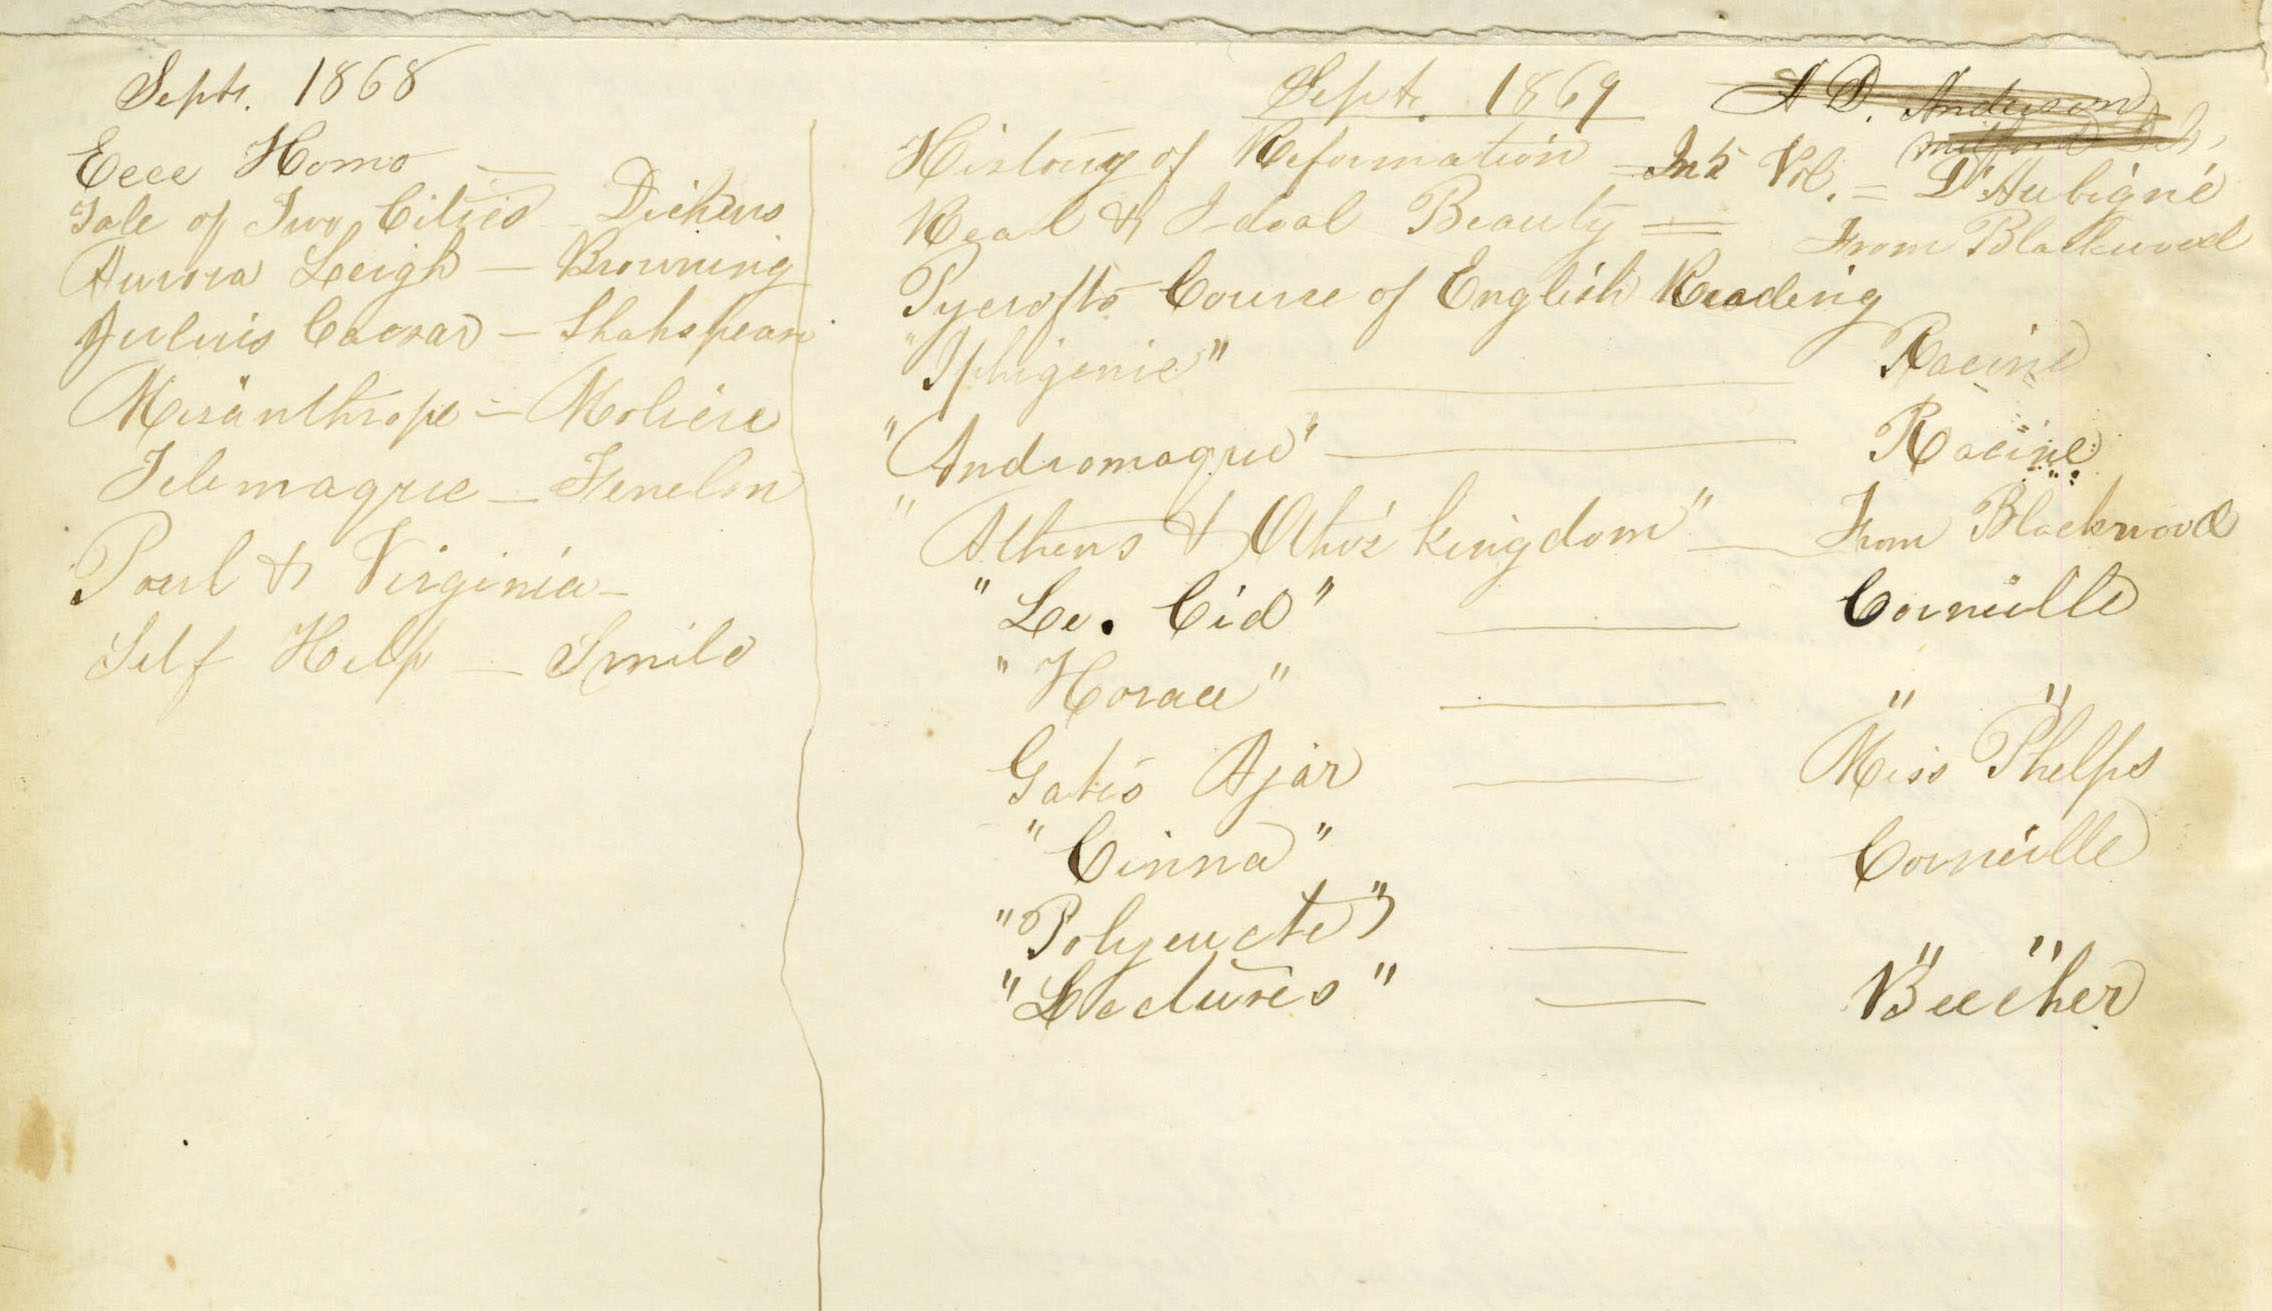 Septr. 1868
Ecce Homo —
Tale of Two Cities — Dickens
Aurora Leigh — Browning
Julius Caesar — Shakspeare
Misanthrope — Molière
Telemaque — Fenelon
Paul & Virginia —
Self Help — Smile
Septr. 1869
A D. Anderson
Milford Del.
History of Reformation = In 5 Vol. = D'Aubigné
Real & Ideal Beauty = From Blackwood
Pycrofts Course of English Reading
"Iphigenie" — Racine
"Andromaque" — Racine
"Athens & Otho's kingdom" — From Blackwood
"Le. Cid" — Corneille
"Horace" — " "
Gates Ajar — Miss Phelps
"Cinna" Corneille
"Polyeucte" — " "
"Lectures" — Beecher